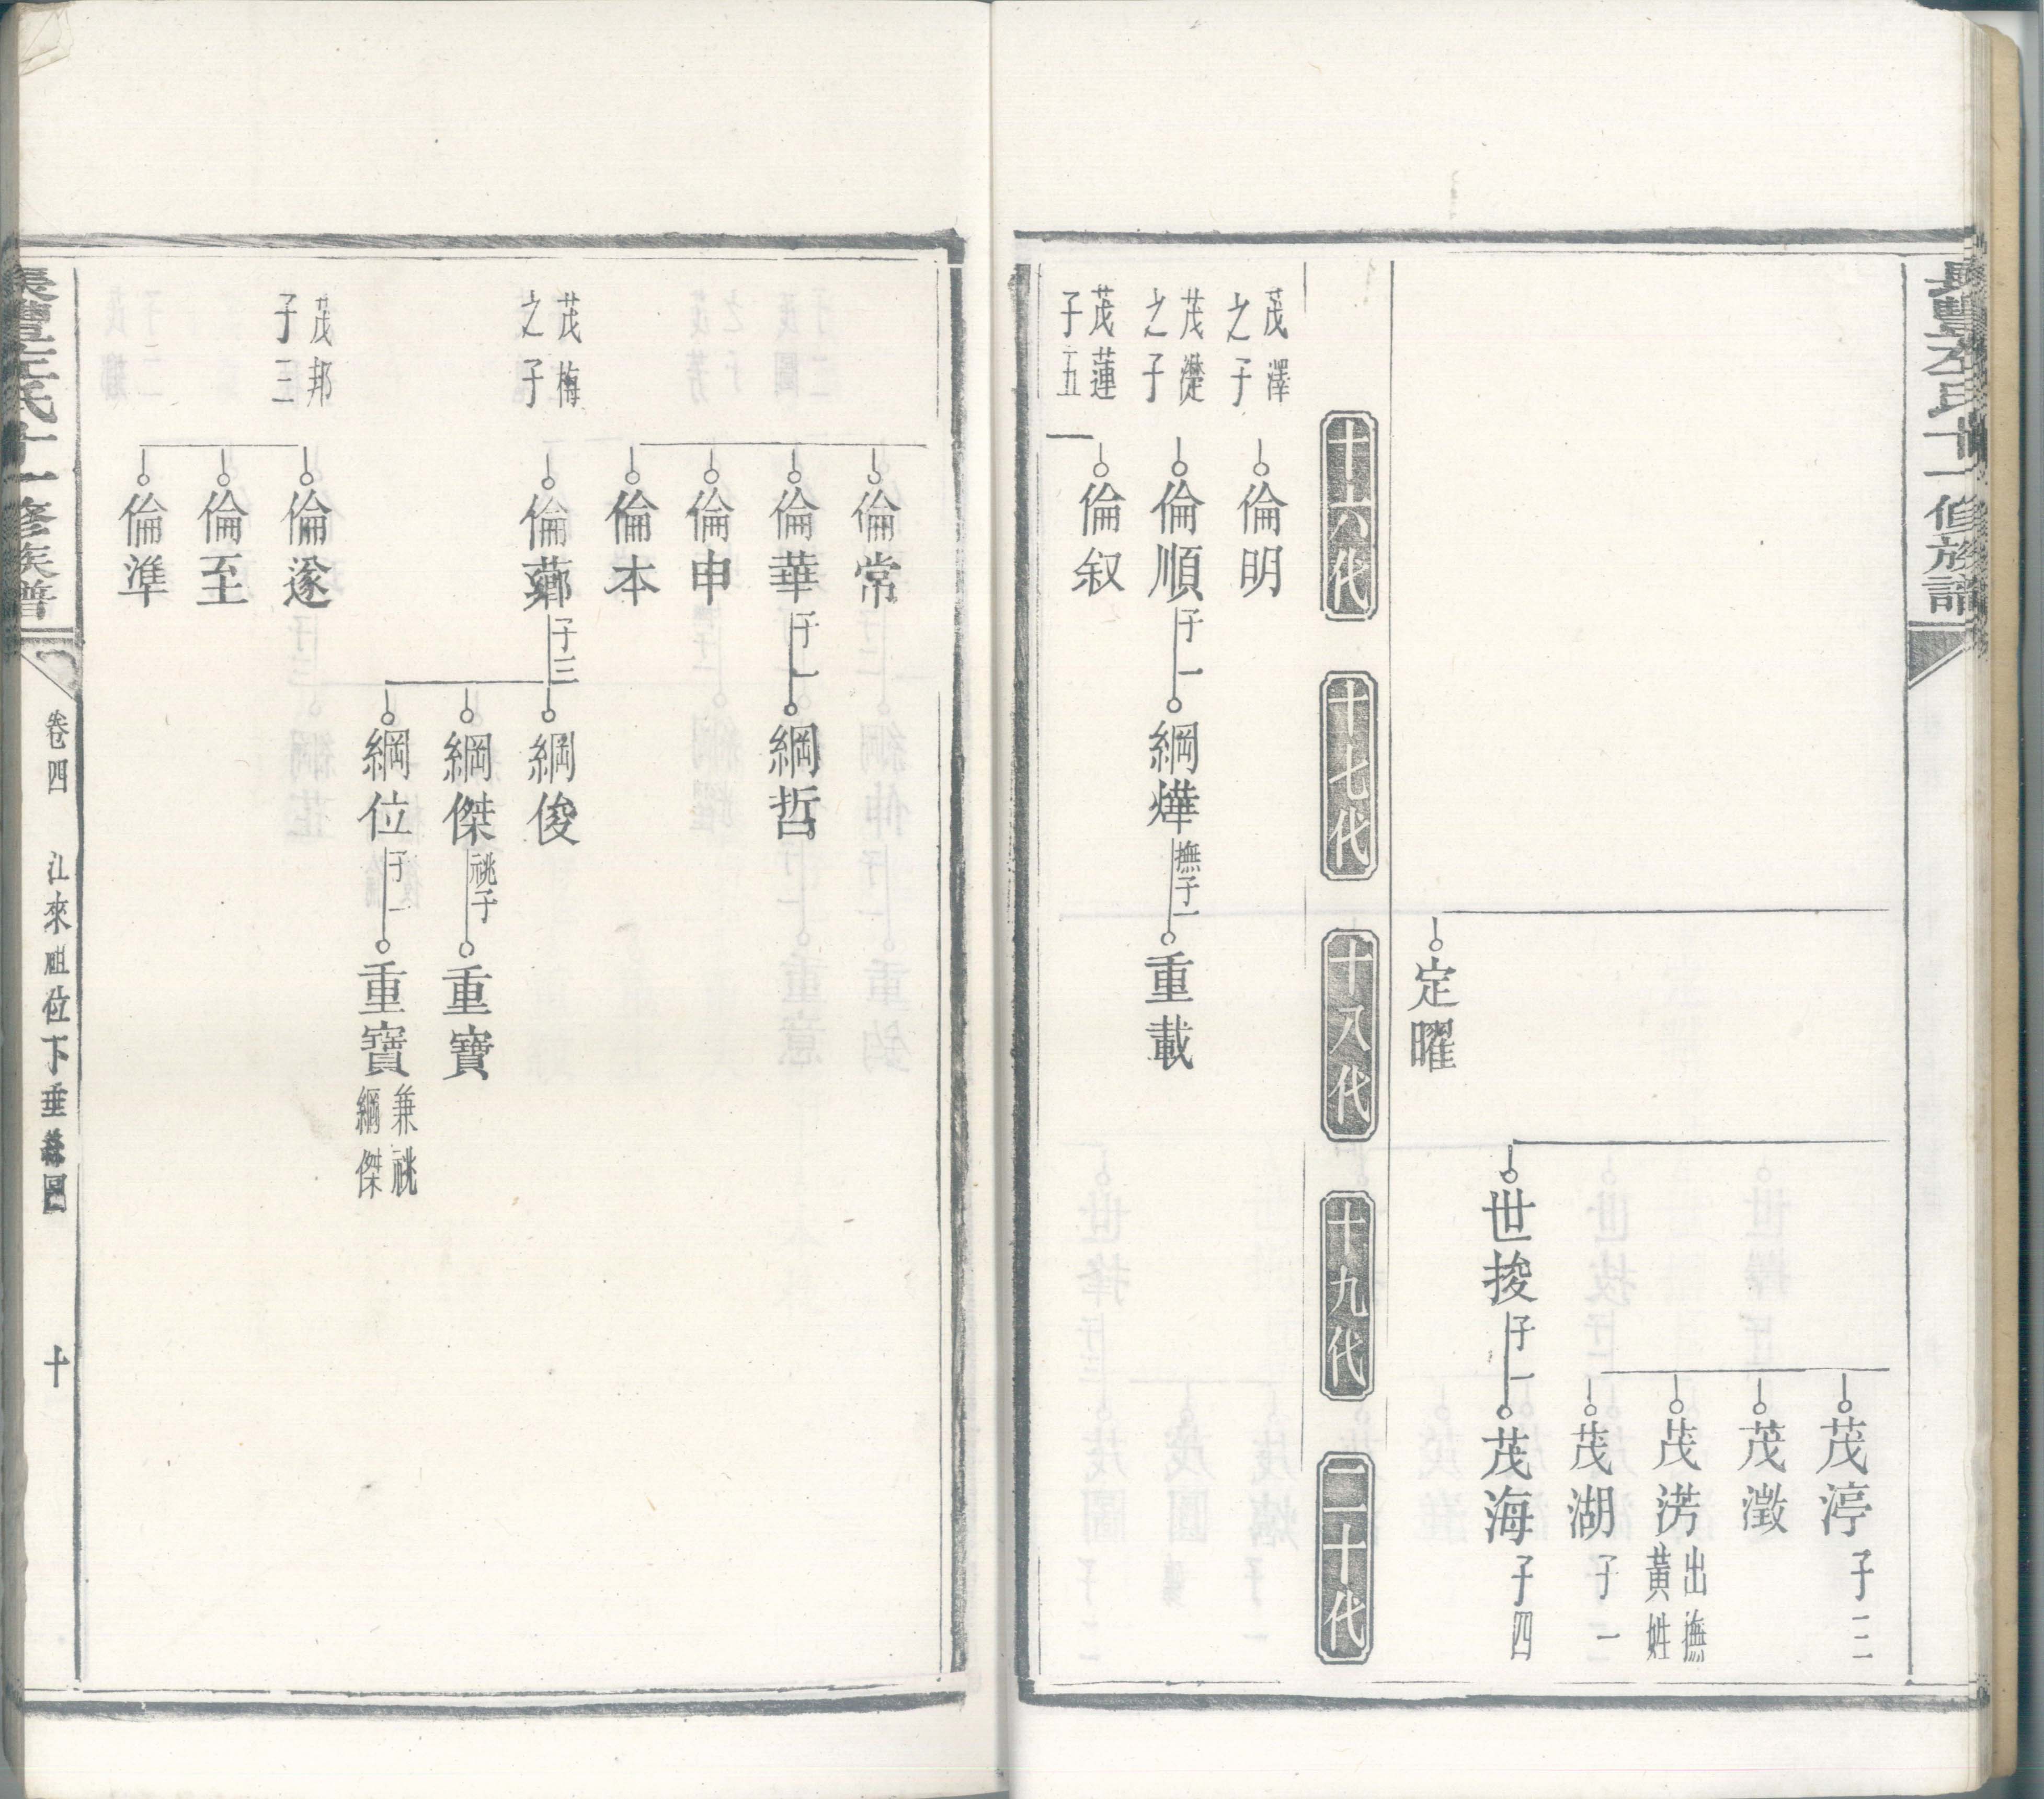 修族譜
茂渟
子二
茂澂
茂淓
出撫
黃姓
茂湖
子一
世捘
子一
茂海
子四
定曜
十六代
十七代
十八代
十九代
二十代
茂澤
之子
倫明
茂濋
之子
倫順
子一
綱燁
撫子一
重載
茂蓮
子五
倫叙
倫常
倫華
子一
綱哲
倫申
倫本
茂梅
之子
倫薌
子三
綱俊
綱傑
祧子
重寶
綱位
子一
重寶
兼祧
綱傑
茂邦
子三
倫邃
倫至
倫準
氏十一修族譜
卷四
江來祖位下垂絲圖
十